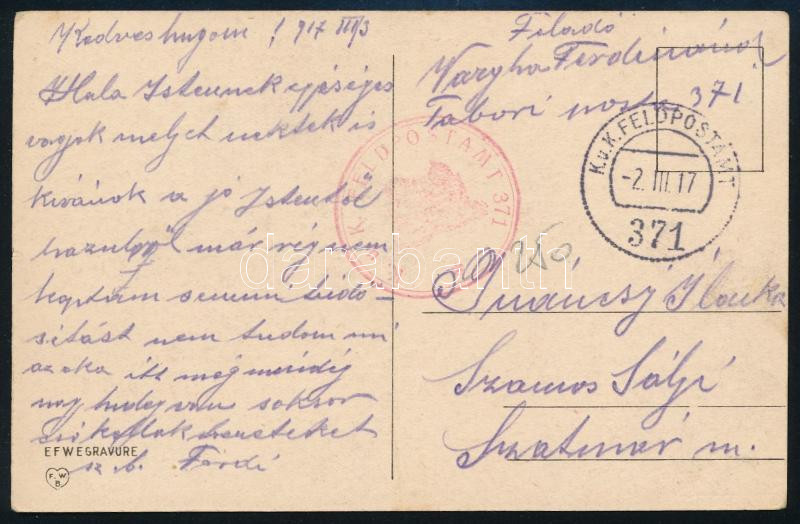 Kedves hugom! 917 III/3
Hala Istennek egéséges
vagyok melyet nektek is
kivánok a jó Istentöl
hazulról már rég nem
kaptam semmi tudó-
sitást nem tudom mi
az oka itt még mindig
nagy hideg van sokszor
csókollak benneteket
sz. b. Ferdi
EFWEGRAVURE
F. W.
B.
Feladó
Vargha Ferdinánd
Tabori posta 371
K.u.K. FELDPOSTAMT
-2. III. 17
371
K. FELDPOSTAMT 371
250
Ilonka
Szamos Sályi
Szatmár m.
darabanth